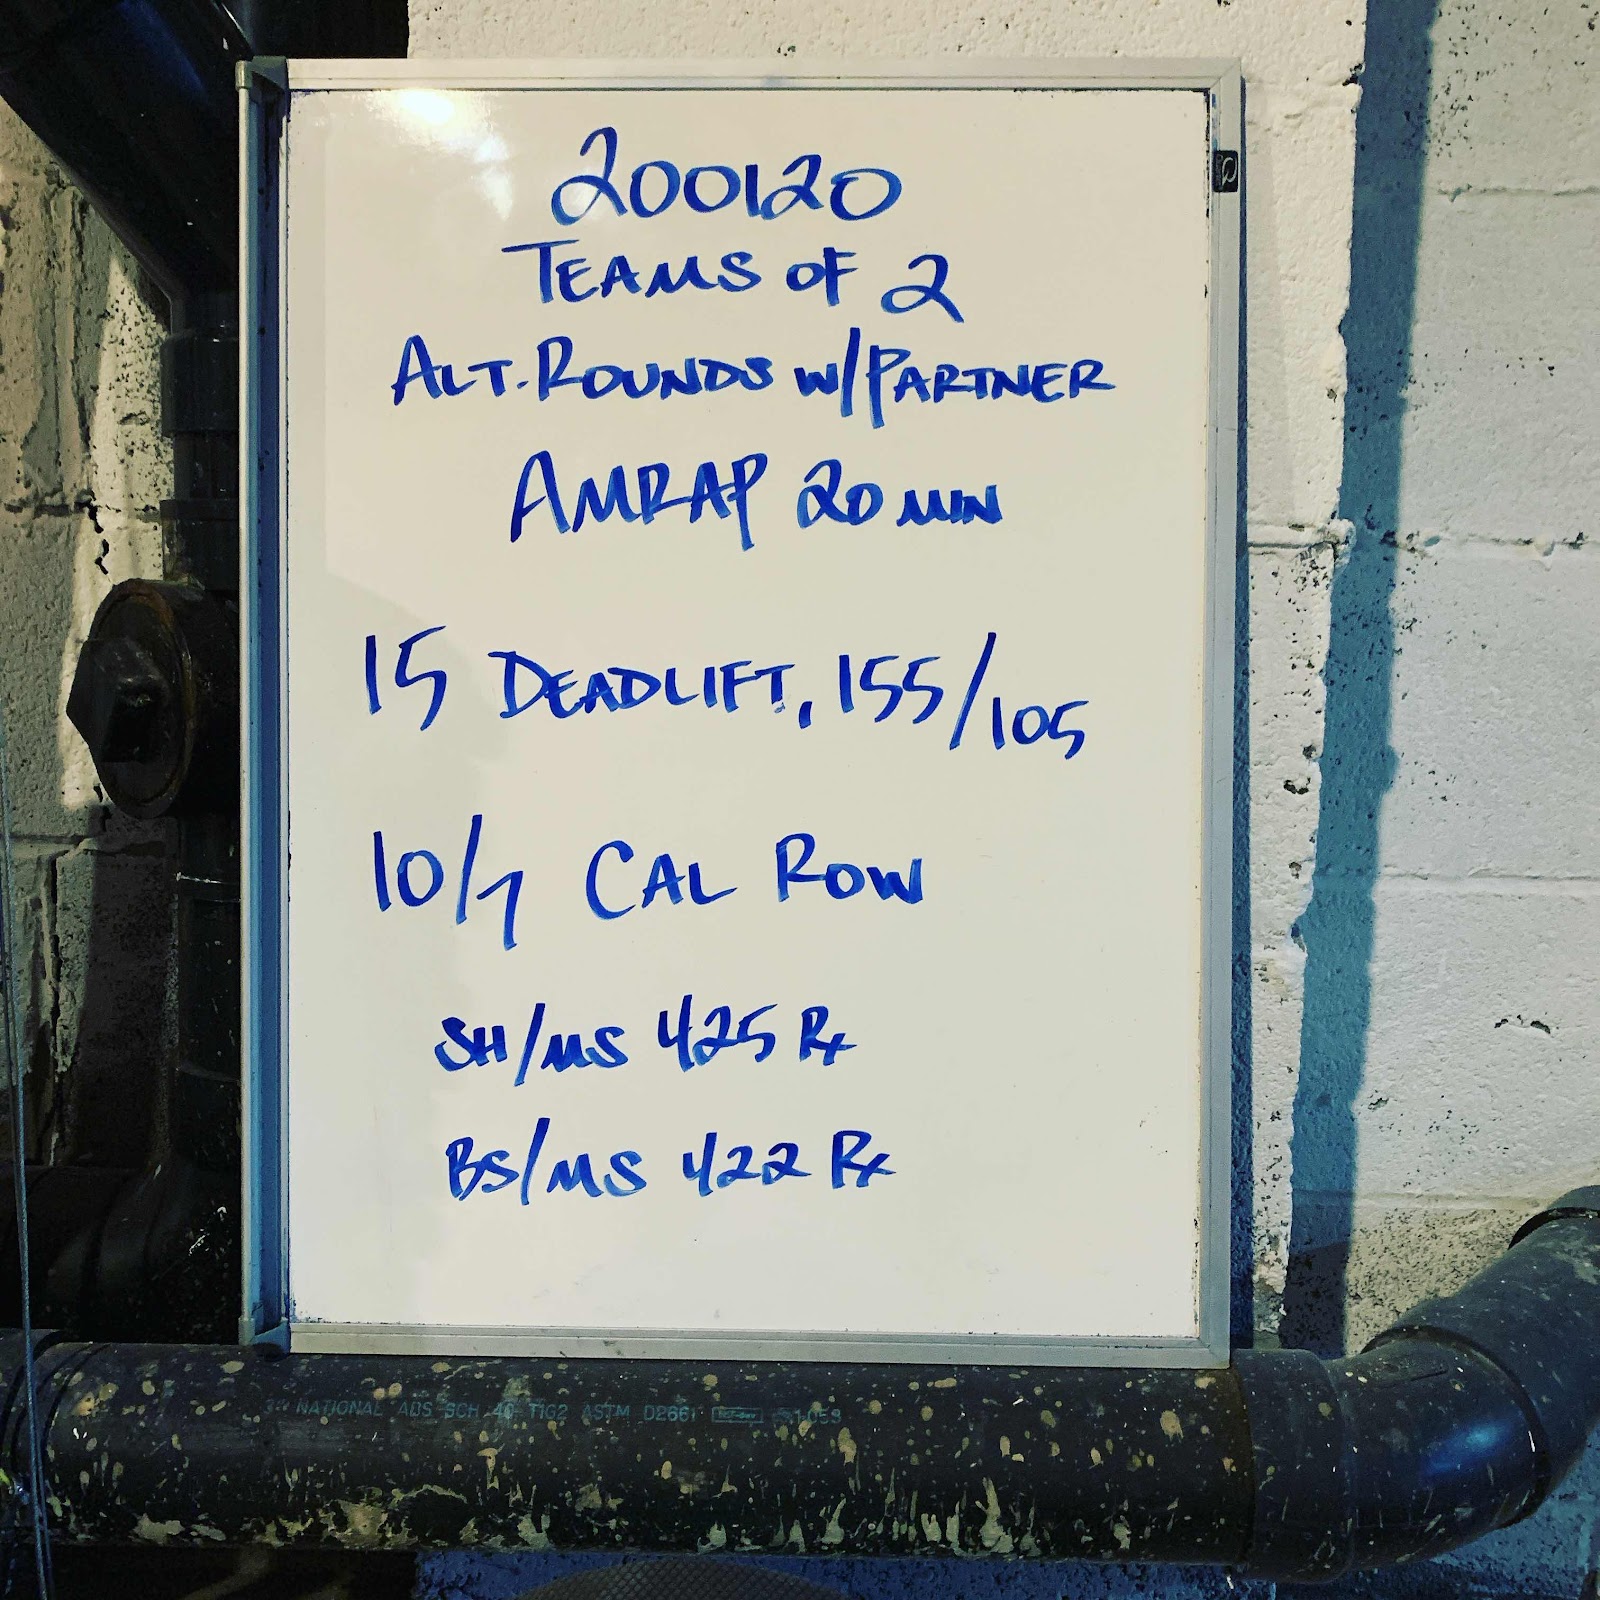 200120
TEAMS OF 2
ALT. ROUNDS W/PARTNER
AMRAP 20 MIN
15 DEADLIFT, 155/105
10/7 CAL ROW
SH/MS 425 Rx
BS/MS 422 Rx
NATIONAL ABS SCH 40 ASTM D2661